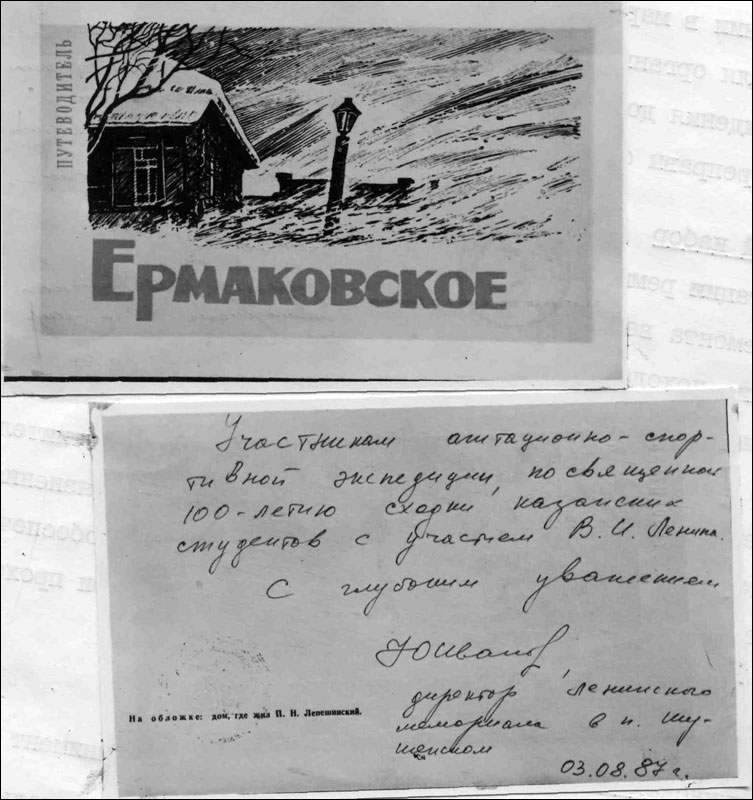 ПУТЕВОДИТЕЛЬ
ЕРМАКОВСКОЕ
Участникам агитационно-спор-
тивной экспедиции, посвященной
100-летию сходки казанских
студентов с участием В. И. Ленина.
С глубоким уважением
директор Ленинского
мемориала в п. Шу-
шенском
03.08.87 г.
На обложке: дом, где жил П. Н. Лепешинский.